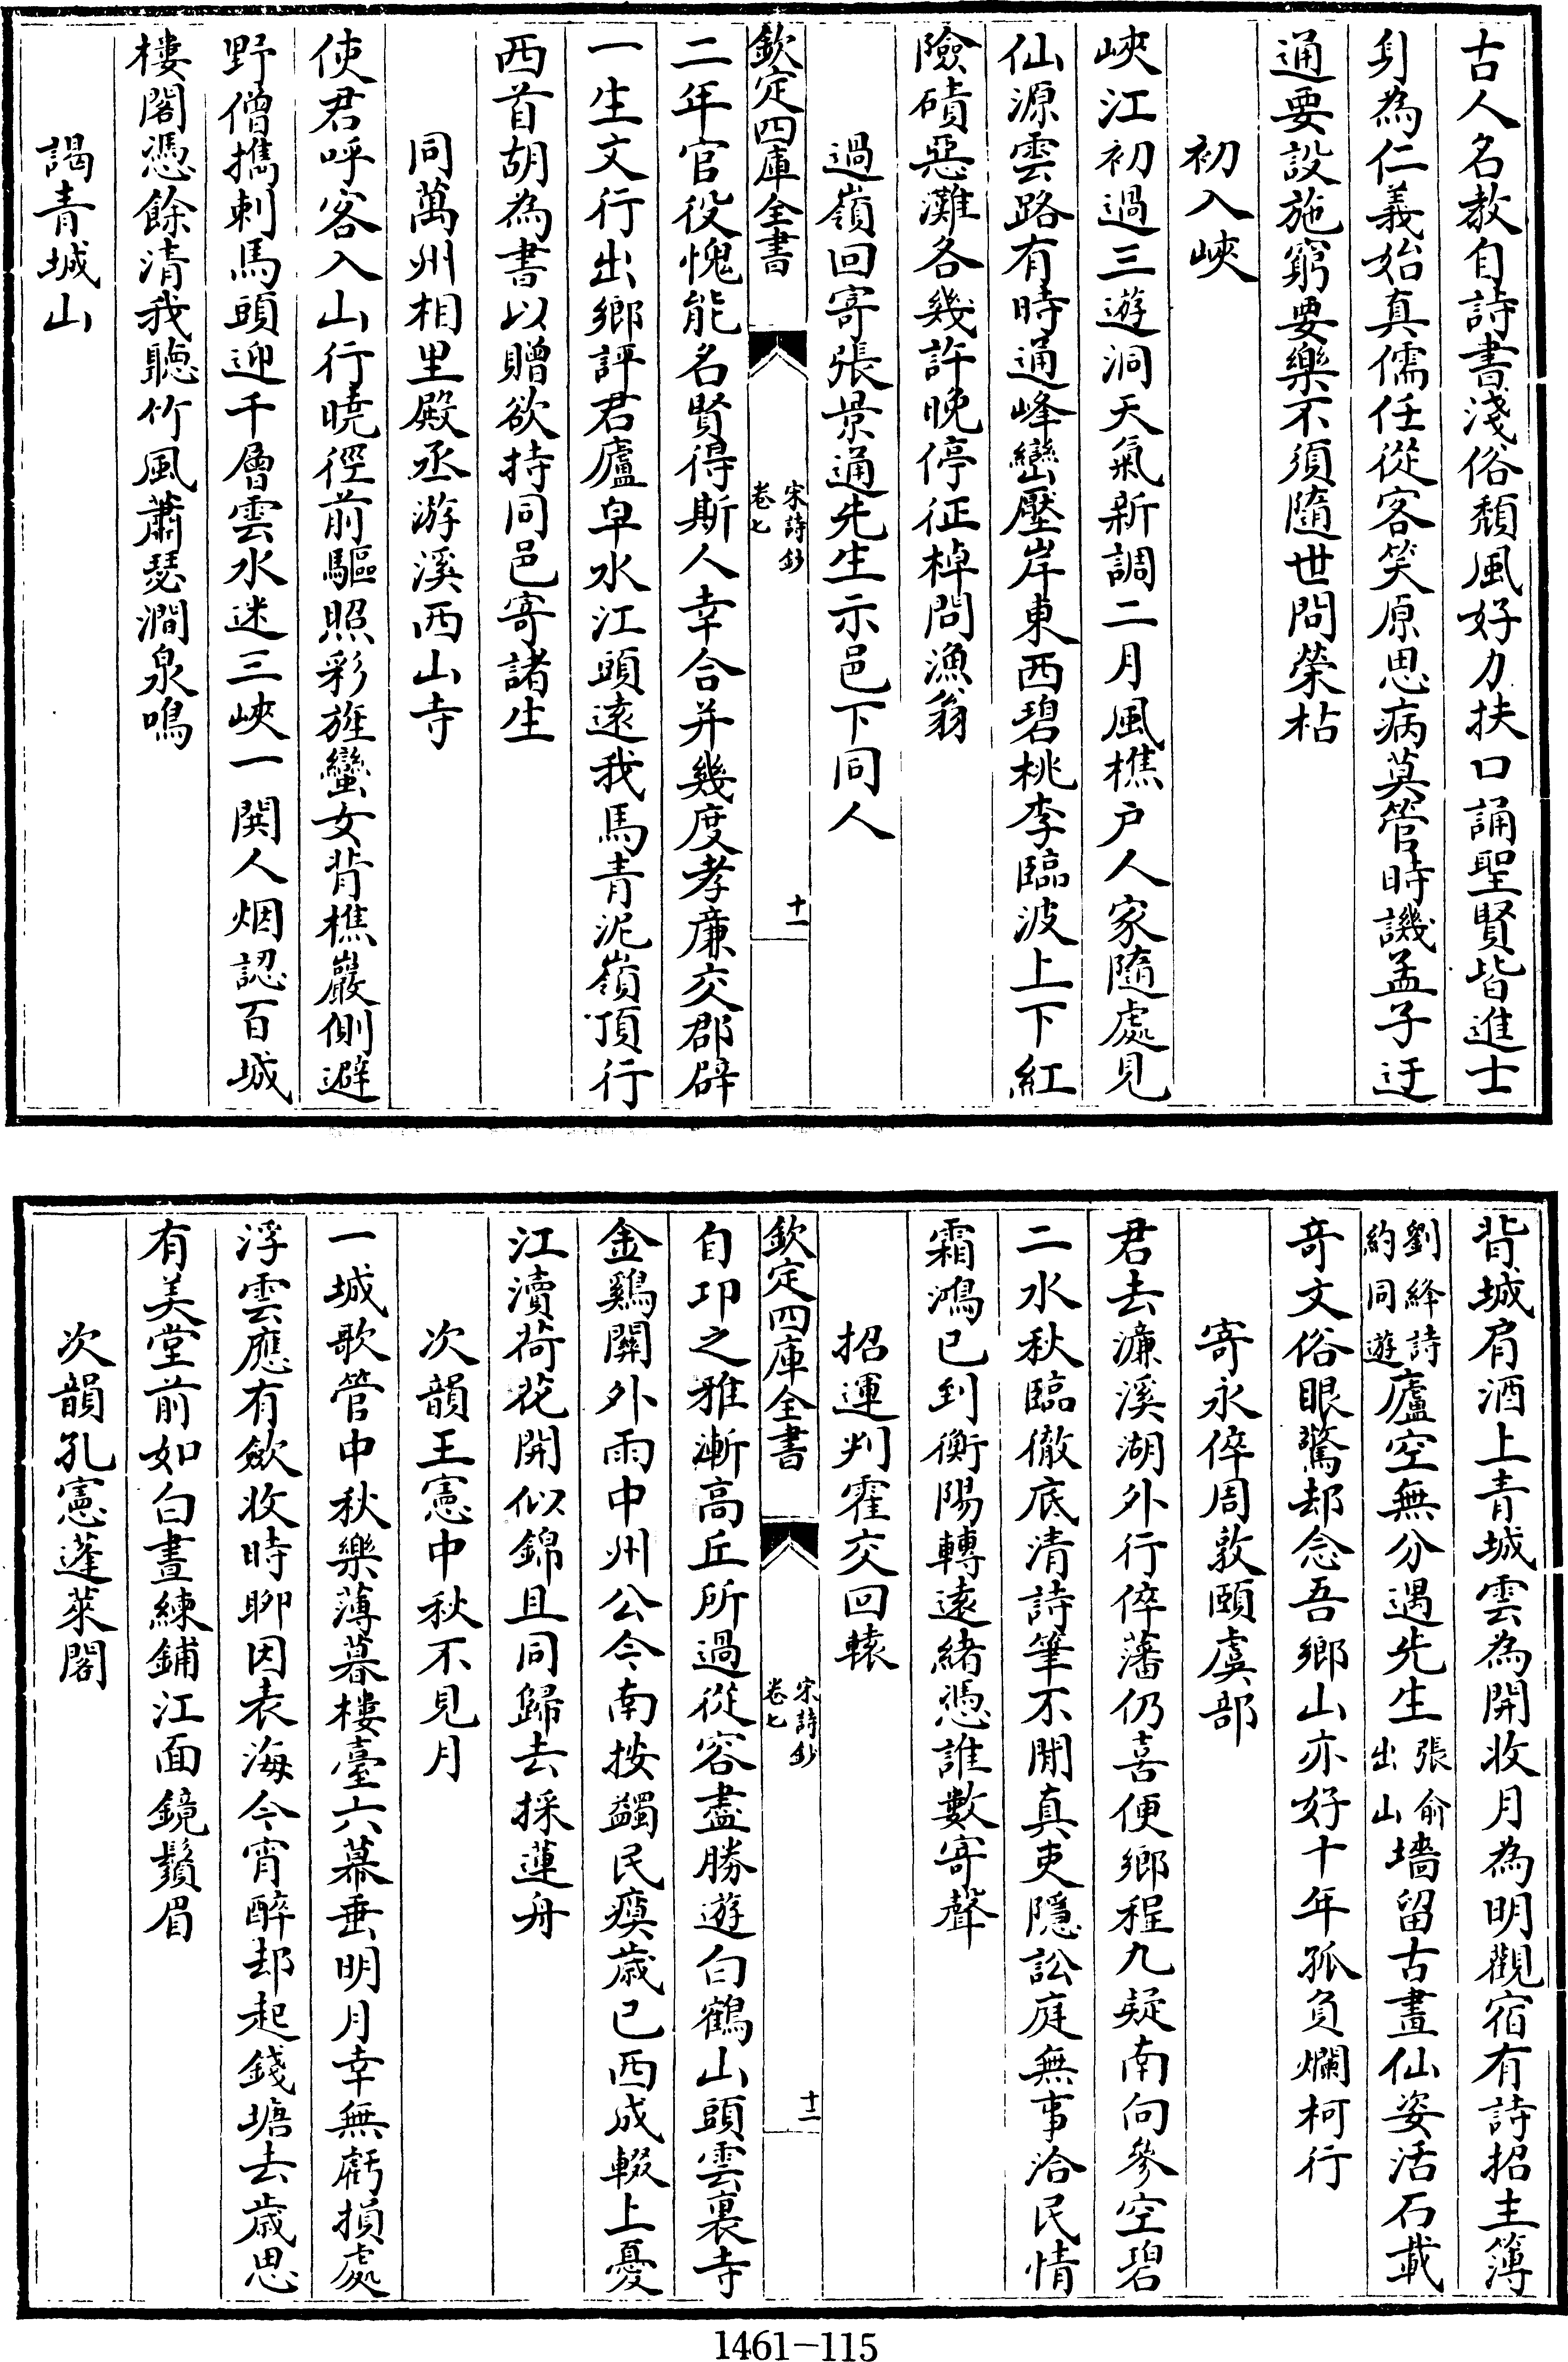 古人名教自詩書淺俗頽風好力扶口誦聖賢皆進士
身為仁義始真儒任從客笑原思病莫管時譏孟子迂
通要設施窮要樂不須隨世問榮枯
初入峽
峽江初過三遊洞天氣新調二月風樵户人家隨處見
仙源雲路有時通峰巒壓岸東西碧桃李臨波上下紅
險磧惡灘各幾許晚停征棹問漁翁
過嶺回寄張景通先生示邑下同人
欽定四庫全書
宋詩鈔
卷七
十一
二年官役愧能名賢得斯人幸合并幾度孝廉交郡辟
一生文行出鄉評君廬皁水江頭遠我馬青泥嶺頂行
西首胡為書以贈欲持同邑寄諸生
同萬州相里殿丞游溪西山寺
使君呼客入山行曉徑前驅照彩旌蠻女背樵巖側避
野僧攜刺馬頭迎千層雲水迷三峽一閧人烟認百城
樓閣憑餘清我聽竹風蕭瑟澗泉鳴
謁青城山
背城肩酒上青城雲為開收月為明觀宿有詩招主簿
劉絳詩
約同遊
廬空無分遇先生
張俞
出山
墻留古畫仙姿活石載
竒文俗眼驚却念吾鄉山亦好十年孤負爛柯行
寄永倅周敦頤虞部
君去濓溪湖外行倅藩仍喜便鄉程九疑南向參空碧
二水秋臨徹底清詩筆不閒真吏隱訟庭無事洽民情
霜鴻已到衡陽轉遠緒憑誰數寄聲
招運判霍交回轅
欽定四庫全書
宋詩鈔
卷七
十二
自卭之雅漸高丘所過從容盡勝遊白鶴山頭雲裏寺
金鷄關外雨中州公今南按蠲民瘼歳已西成輟上憂
江瀆荷花開似錦且同歸去採蓮舟
次韻王憲中秋不見月
一城歌管中秋樂薄暮樓臺六幕垂明月幸無虧損處
浮雲應有歛收時聊因表海今宵醉却起錢塘去歳思
有美堂前如白晝練鋪江面鏡鬚眉
次韻孔憲蓬萊閣
1461-115